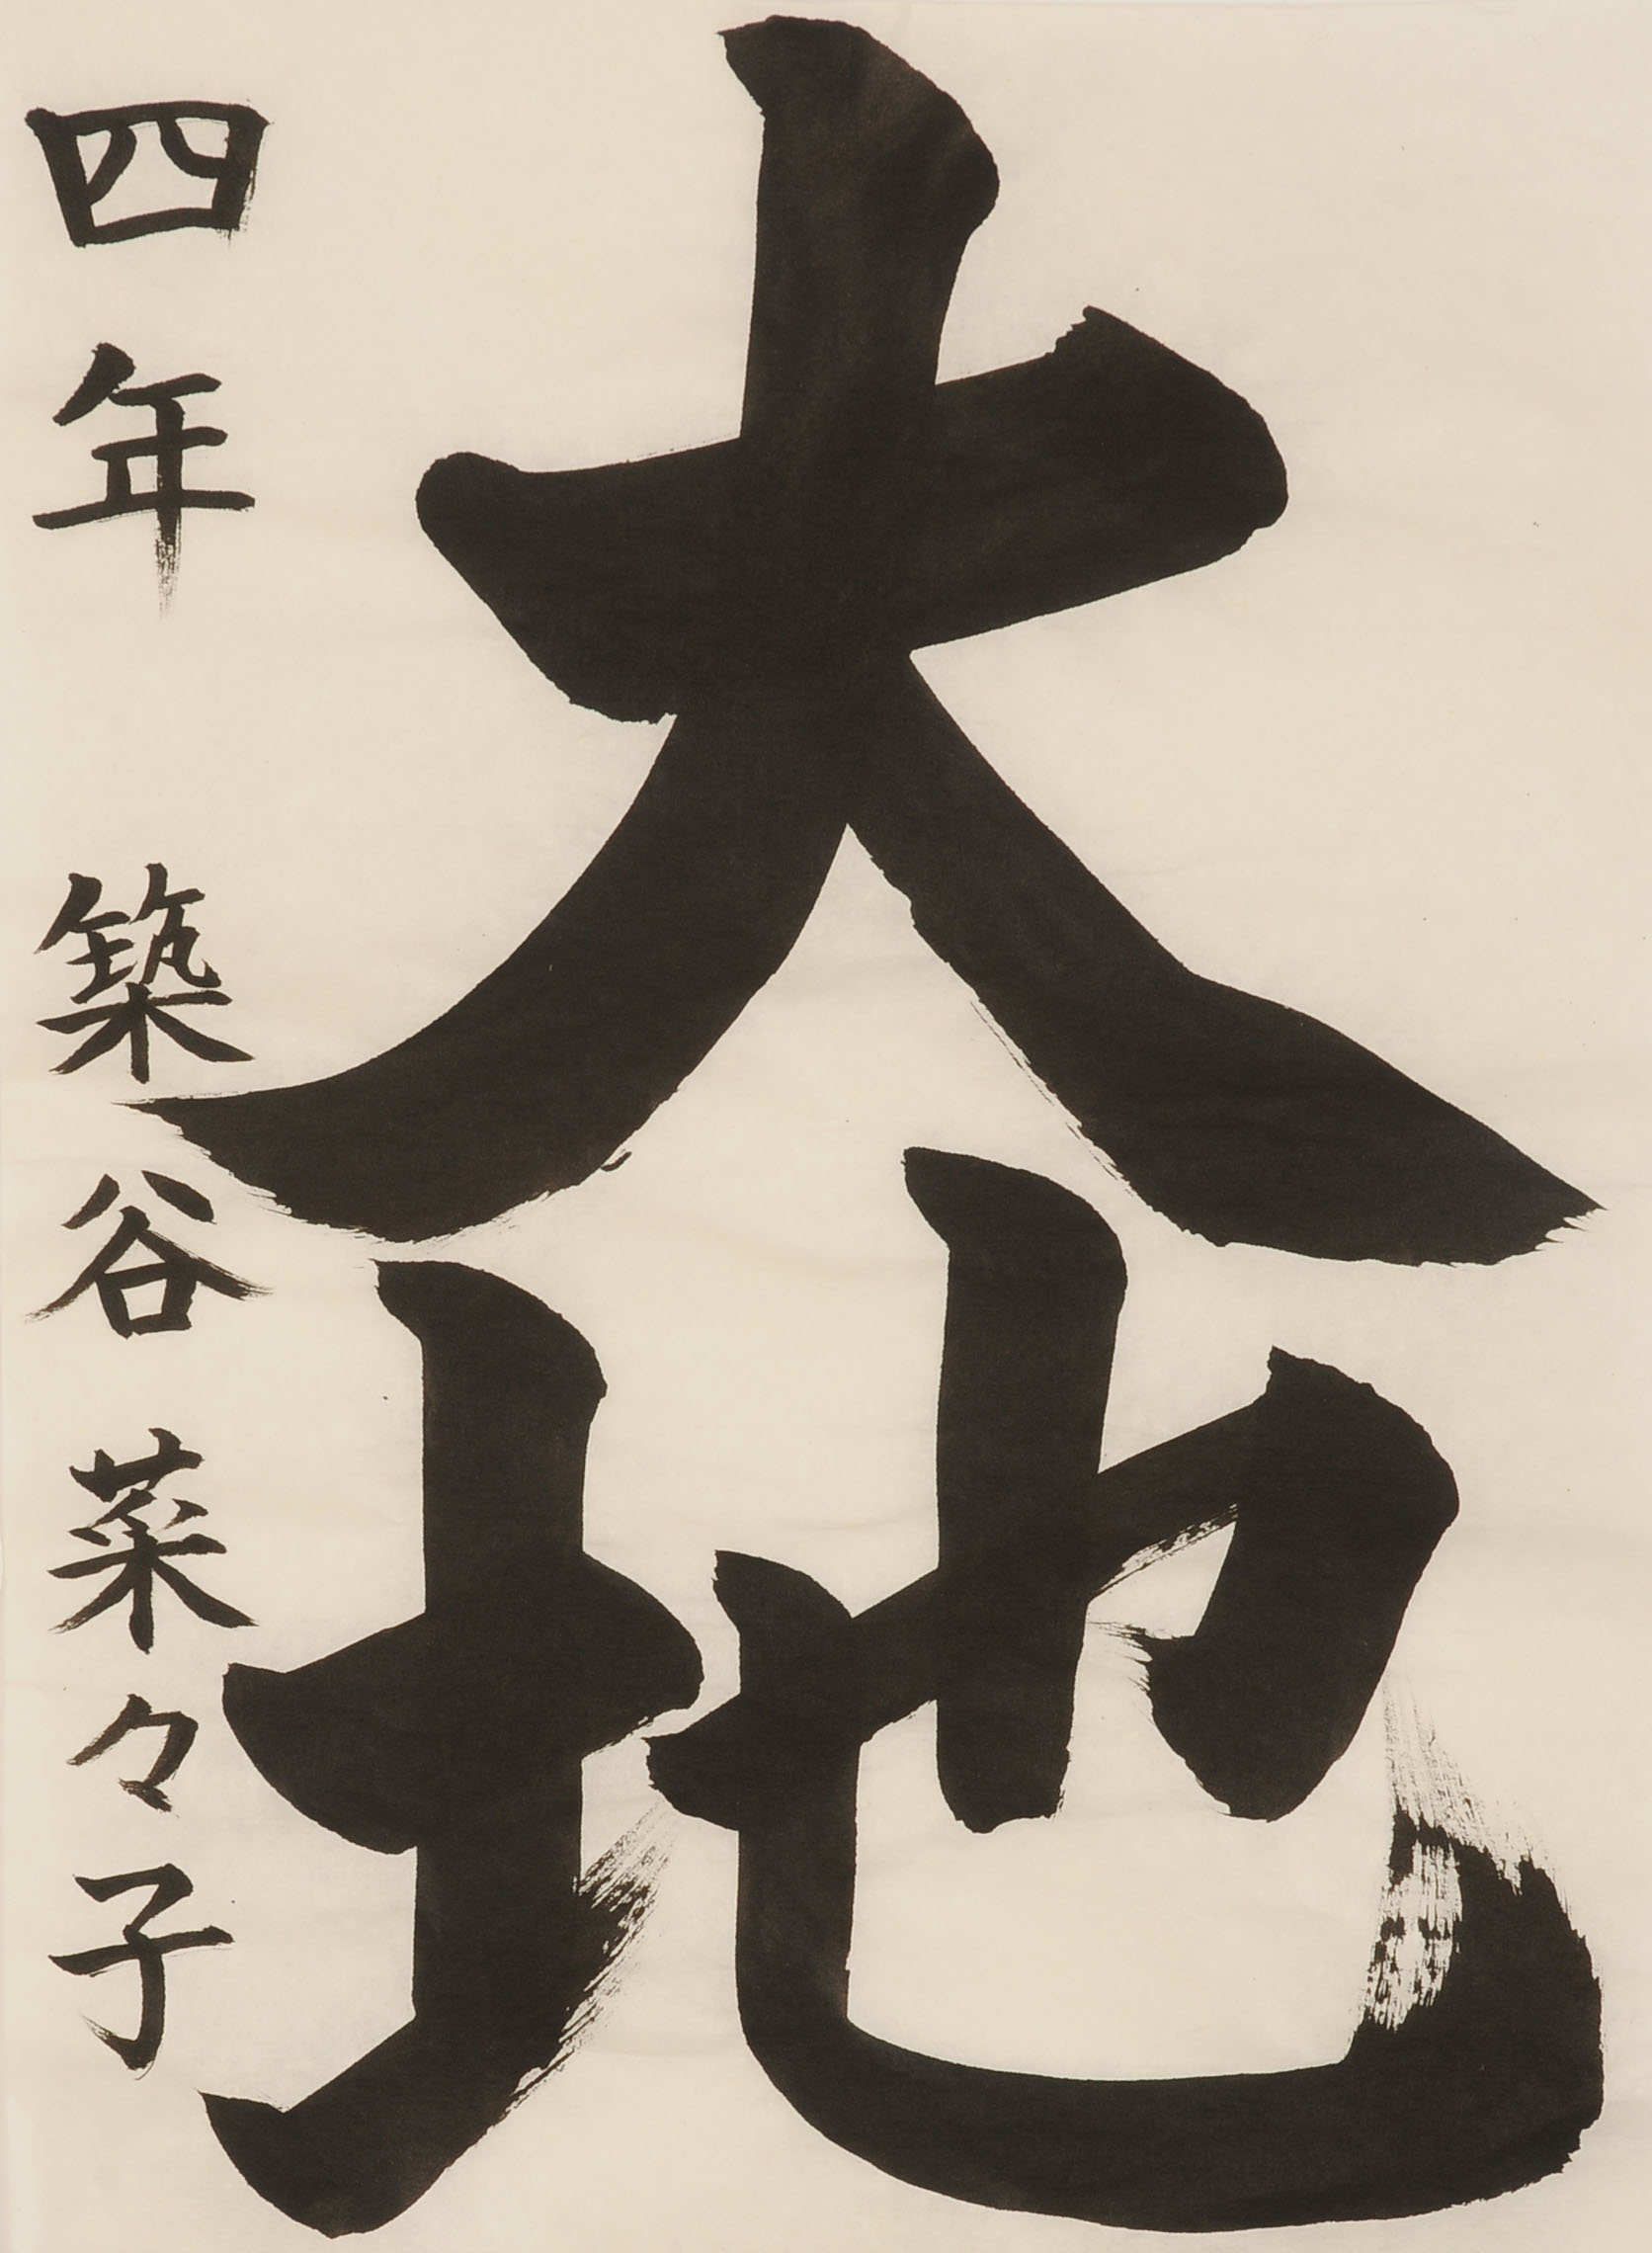 大地
四年 築谷菜々子